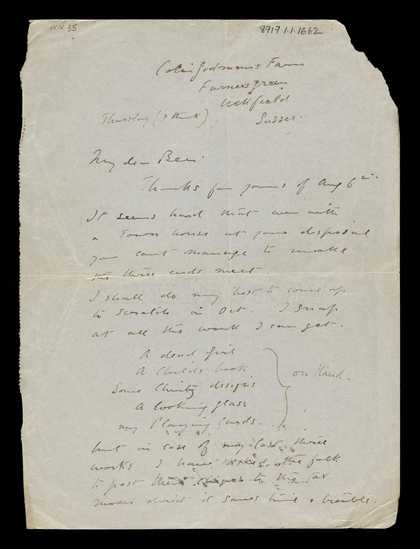 8717.1.1.1662
Colin Godmans Farm
Furners Green
Uckfield
Thursday (I think) Sussex
My dear Ben.
Thanks for yours of Aug 6th
It seems hard that even with
a Town house at your disposal
you can't manage to make
the three ends meet
I shall do my best to come up
to scratch in Oct. I snap
at all the work I can get.
A dead girl
A Child's book
Some Chintz designs
A looking glass
my Playing Cards.
on Hand.
but in case of
works I have the folk
to post to the
means direct it saves time & trouble.